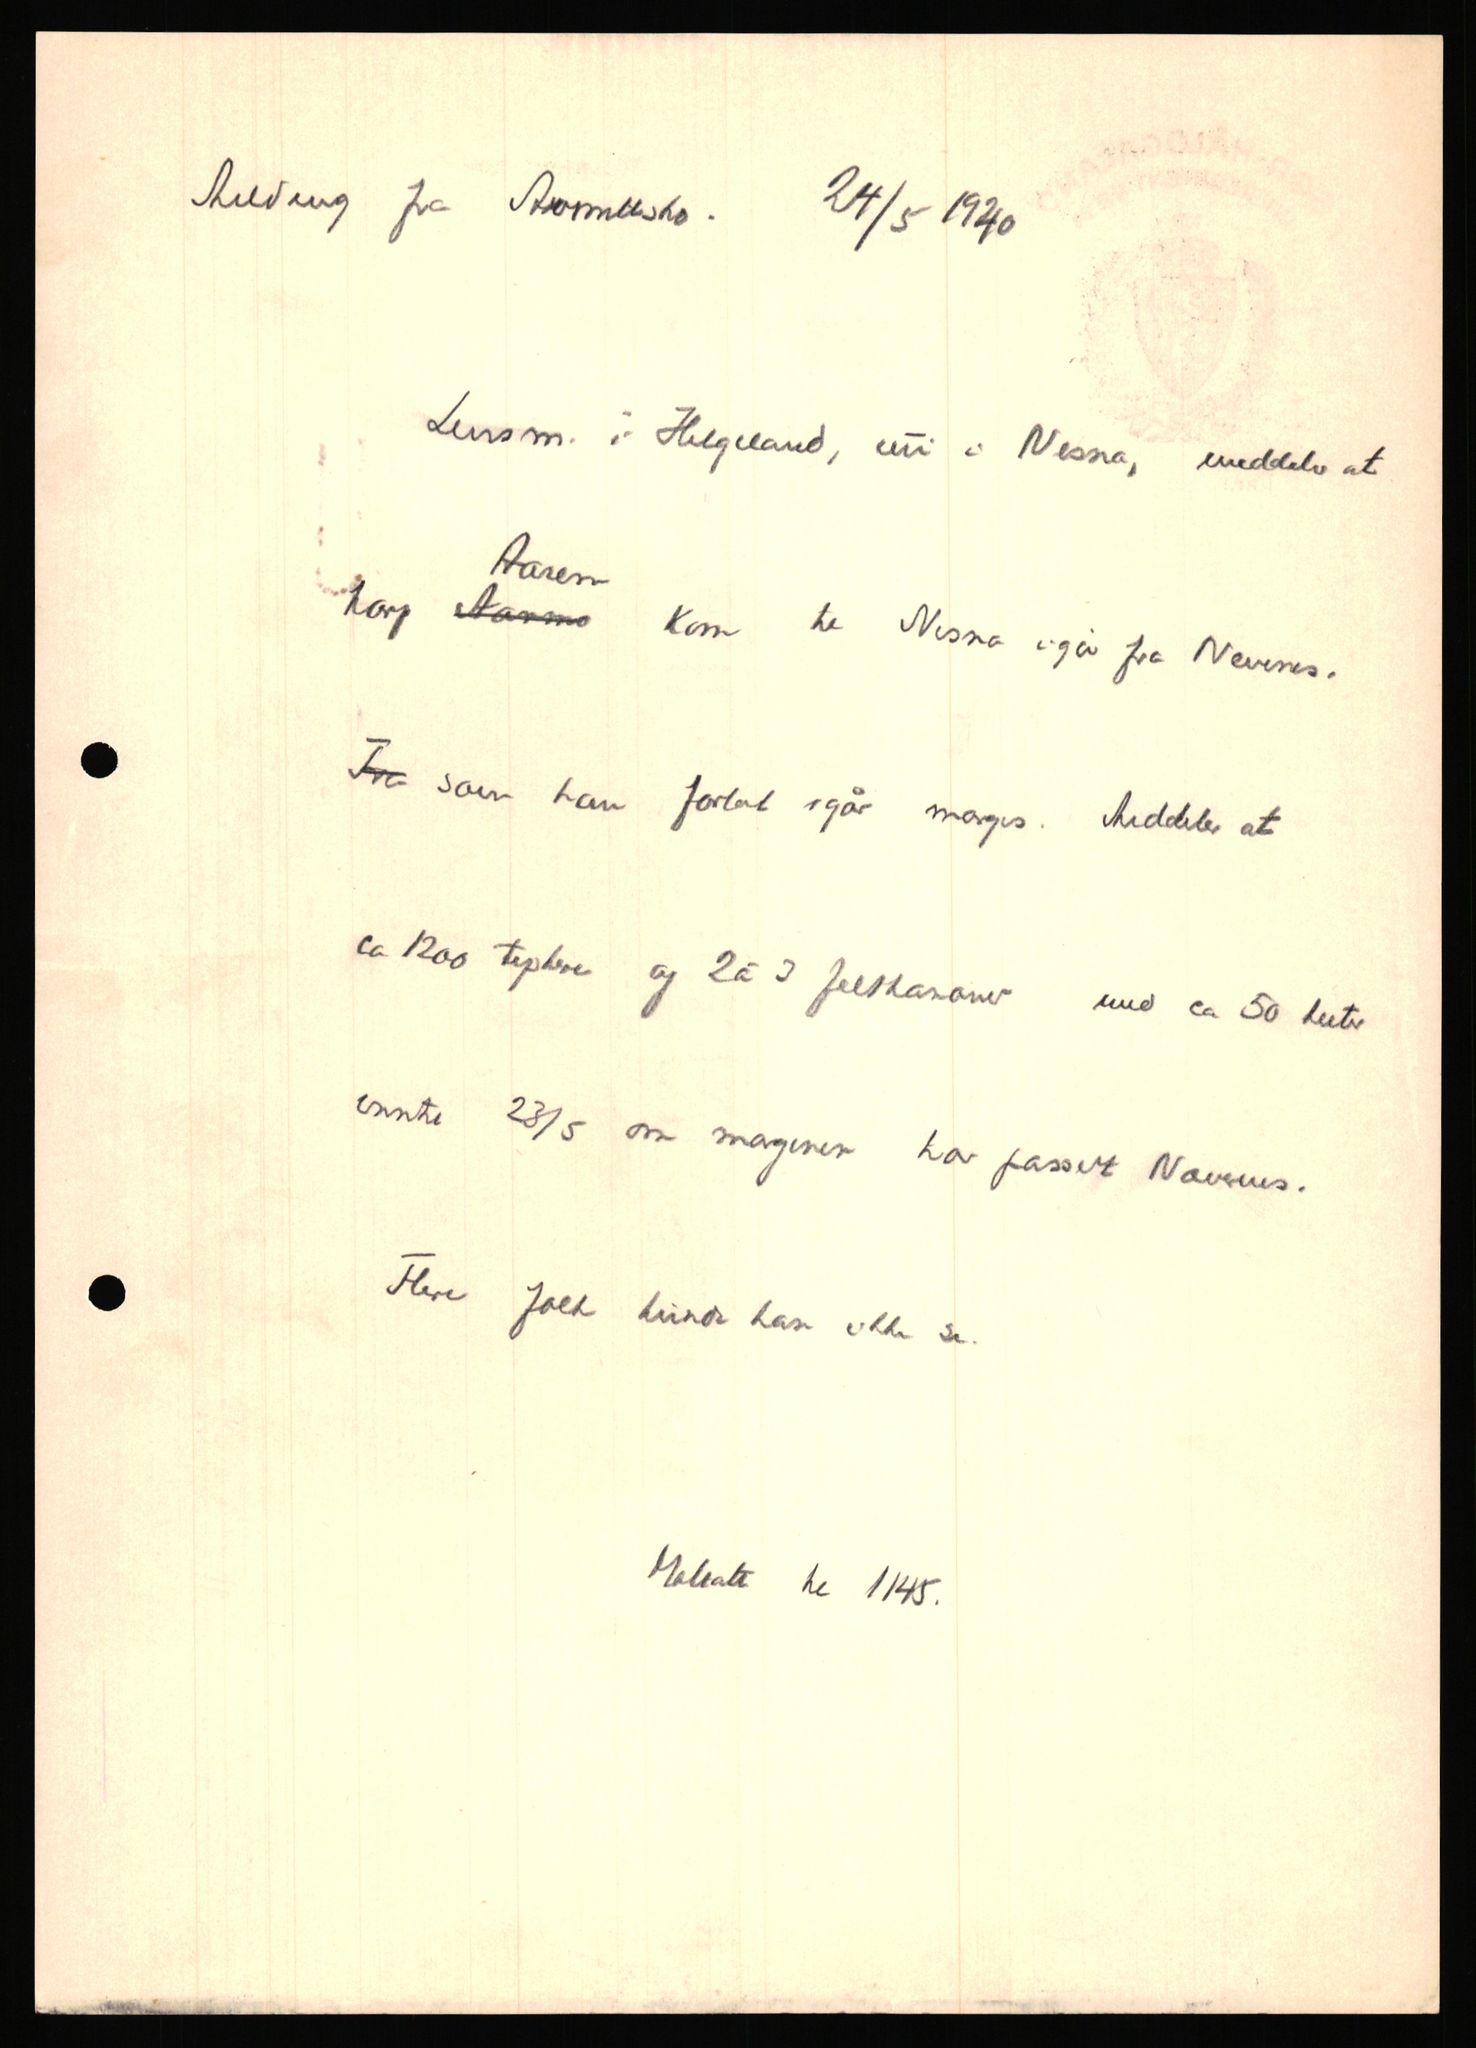 Melding fra 24/5 1940
Lensm. i Helgeland, nu i Nesna, meddeler at
Aasem
korp Aasmo kom kl Nesna igår fra Nevernes.
Fra som han forlot igår morges. Meddeler at
ca 1200 tyskere og 2 à 3 feltkanoner med ca 50 hester
ennte 23/5 om morgenen har passert Nevernes.
Flere folk kunde han ikke se.
Mottatt kl 1145.